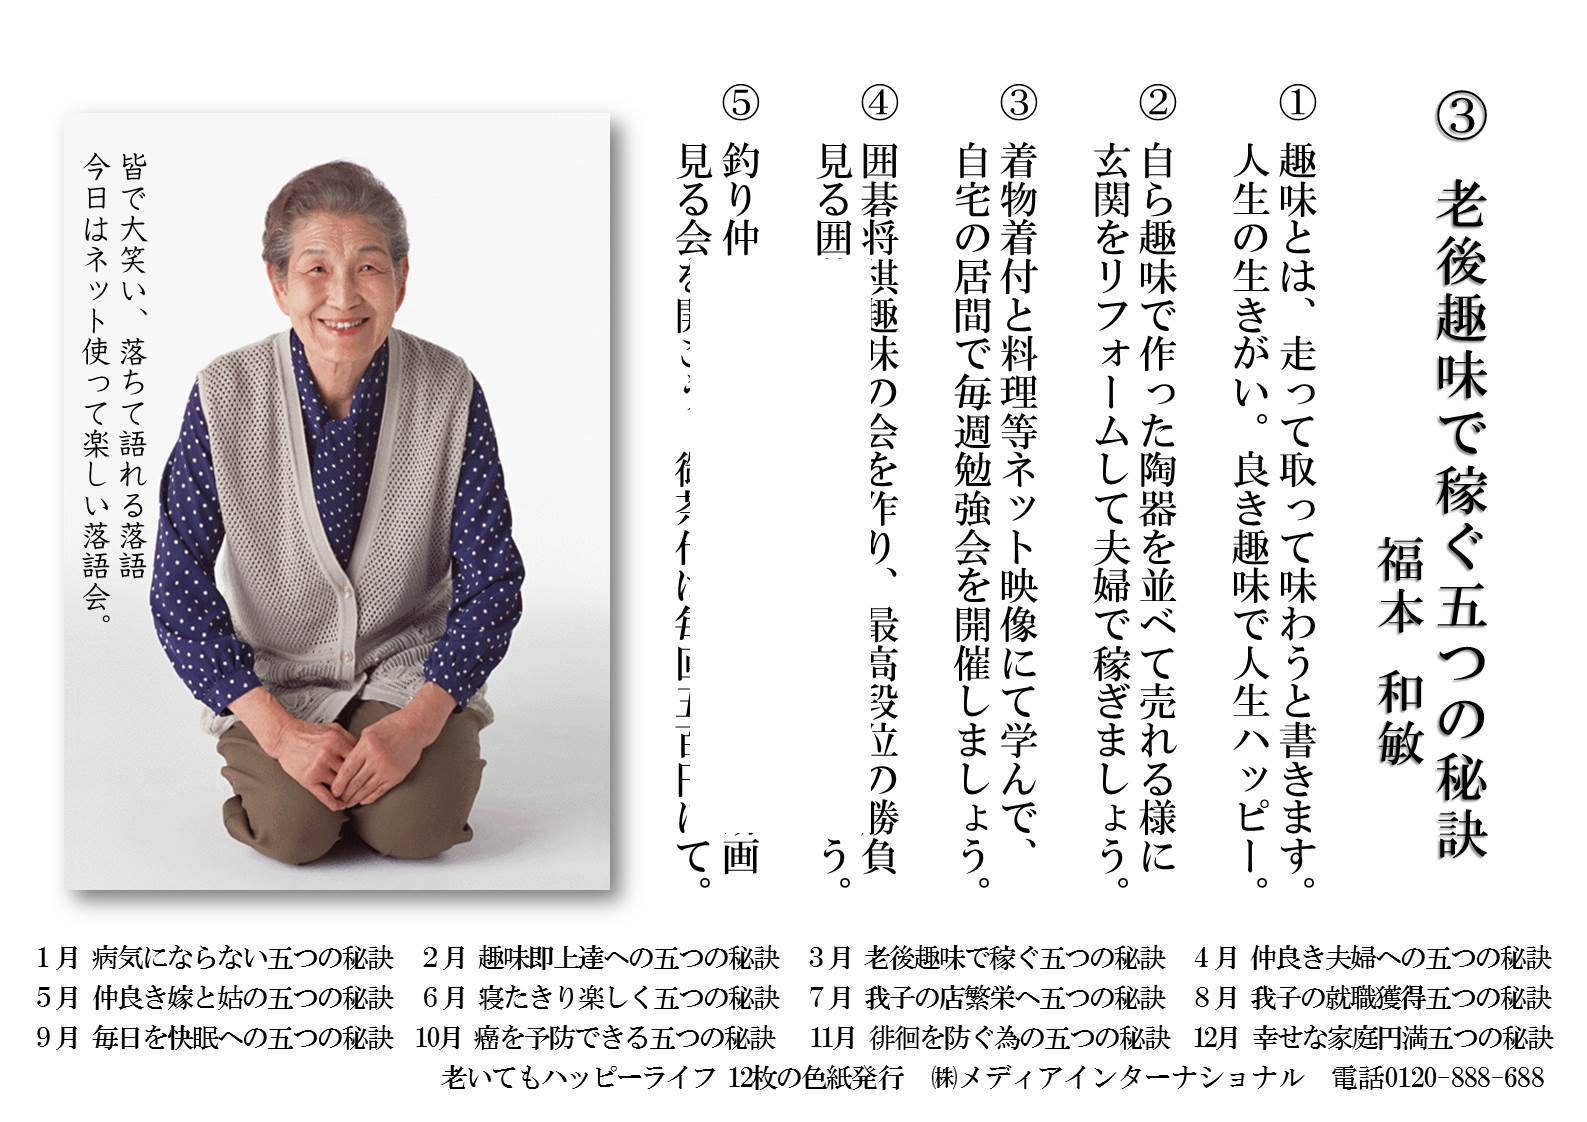 ③ 老後趣味で稼ぐ五つの秘訣
福本 和敏
① 趣味とは、走って取って味わうと書きます。
人生の生きがい。良き趣味で人生ハッピー。
② 自ら趣味で作った陶器を並べて売れる様に
玄関をリフォームして夫婦で稼ぎましょう。
③ 着物着付と料理等ネット映像にて学んで、
自宅の居間で毎週勉強会を開催しましょう。
④ 囲碁将棋趣味の会を作り、最高段位の勝負
見る囲 う。
⑤ 釣り仲 画
見る会を開 御茶代は毎回五百円にて。
皆で大笑い、落ちて語れる落語
今日はネット使って楽しい落語会。
1月 病気にならない五つの秘訣 2月 趣味即上達への五つの秘訣 3月 老後趣味で稼ぐ五つの秘訣 4月 仲良き夫婦への五つの秘訣
5月 仲良き嫁と姑の五つの秘訣 6月 寝たきり楽しく五つの秘訣 7月 我子の店繁栄へ五つの秘訣 8月 我子の就職獲得五つの秘訣
9月 毎日を快眠への五つの秘訣 10月 癌を予防できる五つの秘訣 11月 徘徊を防ぐ為の五つの秘訣 12月 幸せな家庭円満五つの秘訣
老いてもハッピーライフ 12枚の色紙発行 ㈱メディアインターナショナル 電話0120-888-688